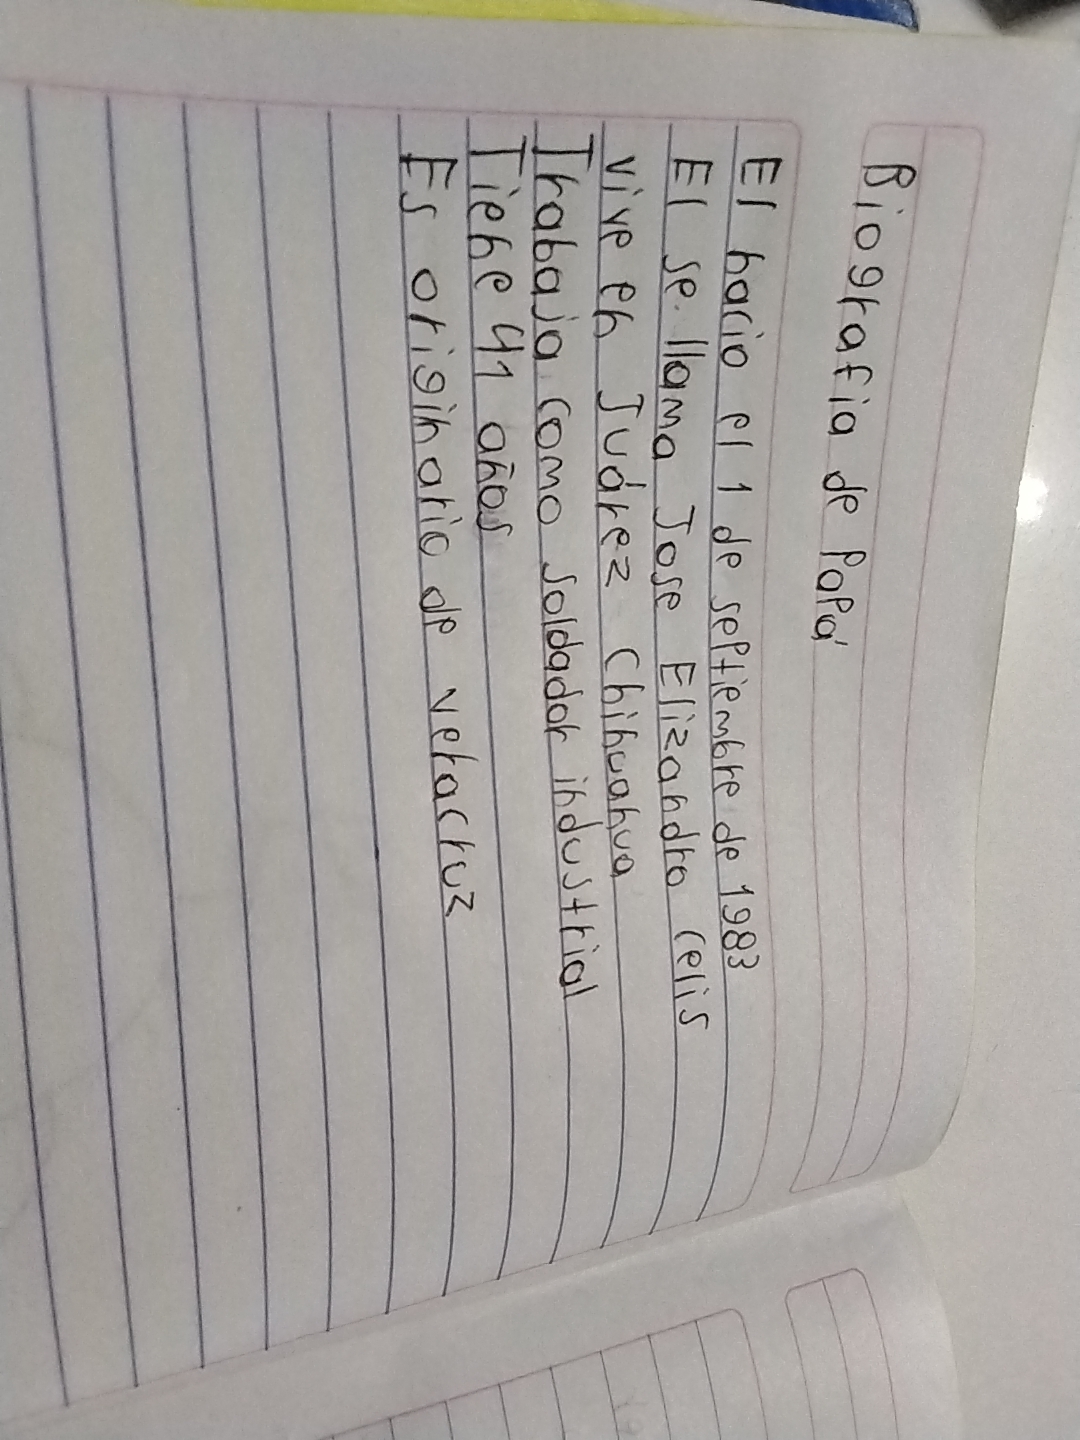 Biografia de Papá
El nacio el 1 de septiembre de 1983
El se llama Jose Elizandro Celis
vive en Juárez Chihuahua
Trabaja como soldador industrial
Tiene 41 años
Es originario de veracruz